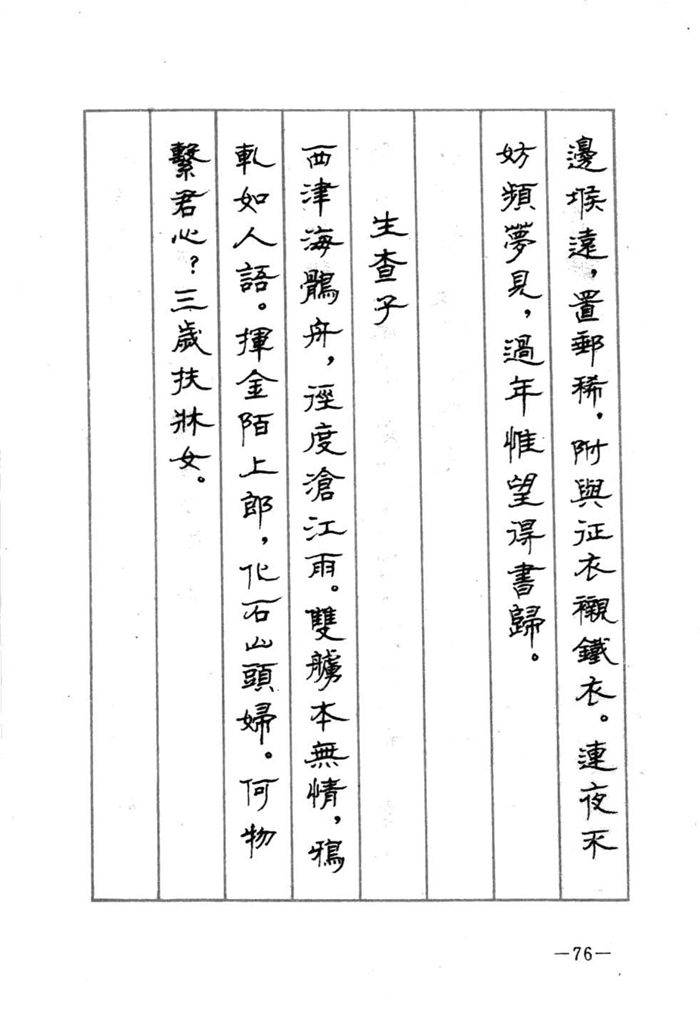 邊堠遠，置郵稀，附與征衣襯鐵衣。連夜不
妨頻夢見，過年惟望得書歸。
生查子
西津海鶻舟，徑度滄江雨。雙艣本無情，鴉
軋如人語。揮金陌上郎，化石山頭婦。何物
繫君心？三歲扶牀女。
—76—